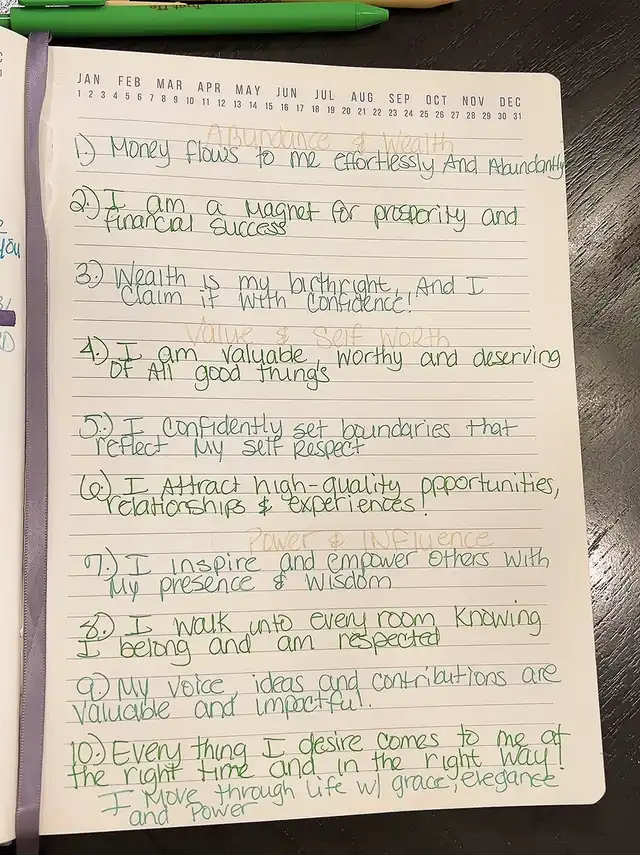 JAN FEB MAR APR MAY JUN JUL AUG SEP OCT NOV DEC
1 2 3 4 5 6 7 8 9 10 11 12 13 14 15 16 17 18 19 20 21 22 23 24 25 26 27 28 29 30 31
Abundance & Wealth
1.) Money flows to me effortlessly And Abundantly
2.) I am a magnet for prosperity and
financial success
3.) Wealth is my birthright, And I
Claim it with Confidence!
Value & Self Worth
4.) I am valuable, worthy and deserving
of All good thing's
5.) I Confidently set boundaries that
reflect My self Respect
6.) I Attract high-quality opportunities,
relationships & experiences!
Power & INfluence
7.) I inspire and empower others with
My presence & Wisdom
8.) I walk into every room Knowing
I belong and am respected
9.) My voice, ideas and contributions are
valuable and impactful.
10.) Every thing I desire comes to me at
the right time and in the right way!
I Move through life w/ grace, elegance
and Power
YOU